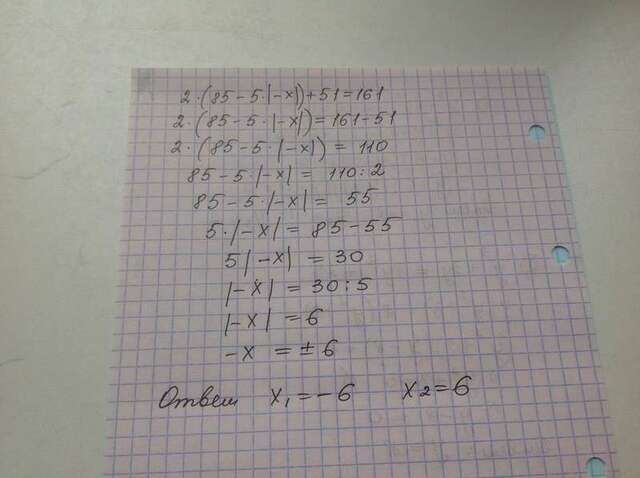 2·(85-5·|-x|)+51=161
2·(85-5·|-x|)=161-51
2·(85-5·|-x|) = 110
85-5·|-x| = 110:2
85-5·|-x| = 55
5·|-x| = 85-55
5|-x| = 30
|-x| = 30:5
|-x| = 6
-x = ±6
Ответ x₁=-6 x2=6